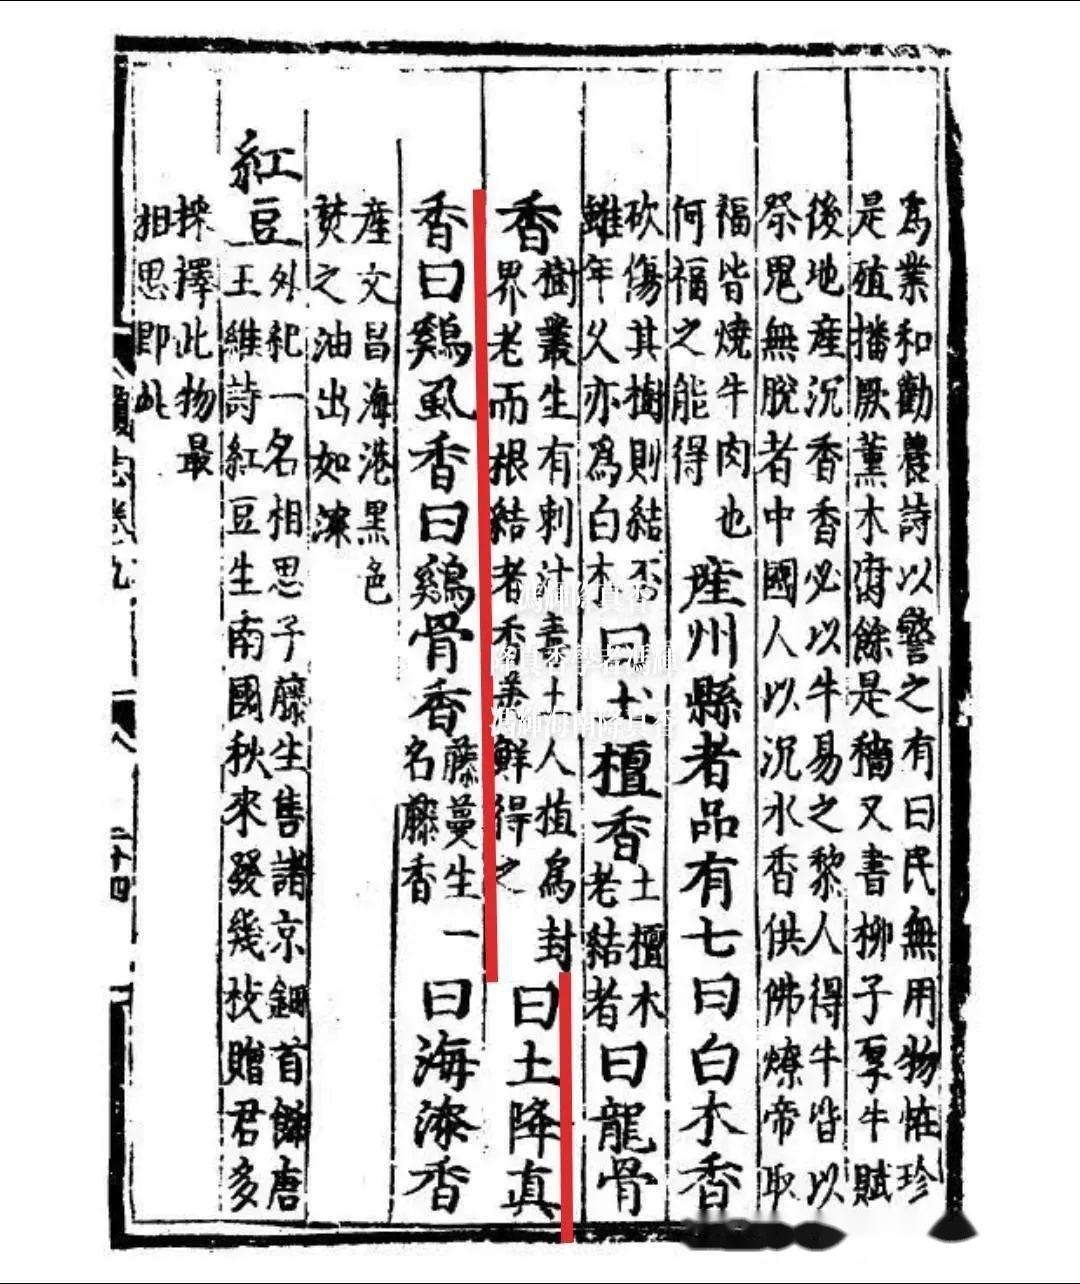 為業和勸農詩以警之有曰民無用物恠珍
是殖播厥薰木腐餘是穡又書柳子厚牛賦
後地產沉香香必以牛易之黎人得牛皆以
祭鬼無脫者中國人以沉水香供佛燎帝取
福皆燒牛肉也
何福之能得
產州縣者品有七曰白木香
砍傷其樹則結否
雖年久亦為白木
曰土檀香
土檀木
老結者
曰龍骨
香
樹叢生有刺汁毒土人植為封
界老而根結者香美鮮得之
曰土降真
香曰鷄虱香曰鷄骨香
藤蔓生一
名藤香
曰海漆香
產文昌海港黑色
焚之油出如漆
紅豆
外紀一名相思子藤生售諸京鈿首飾唐
王維詩紅豆生南國秋來發幾枝贈君多
採擇此物最
相思即此
志卷九
二十四
降真香
降真香學者馮
海南降真香